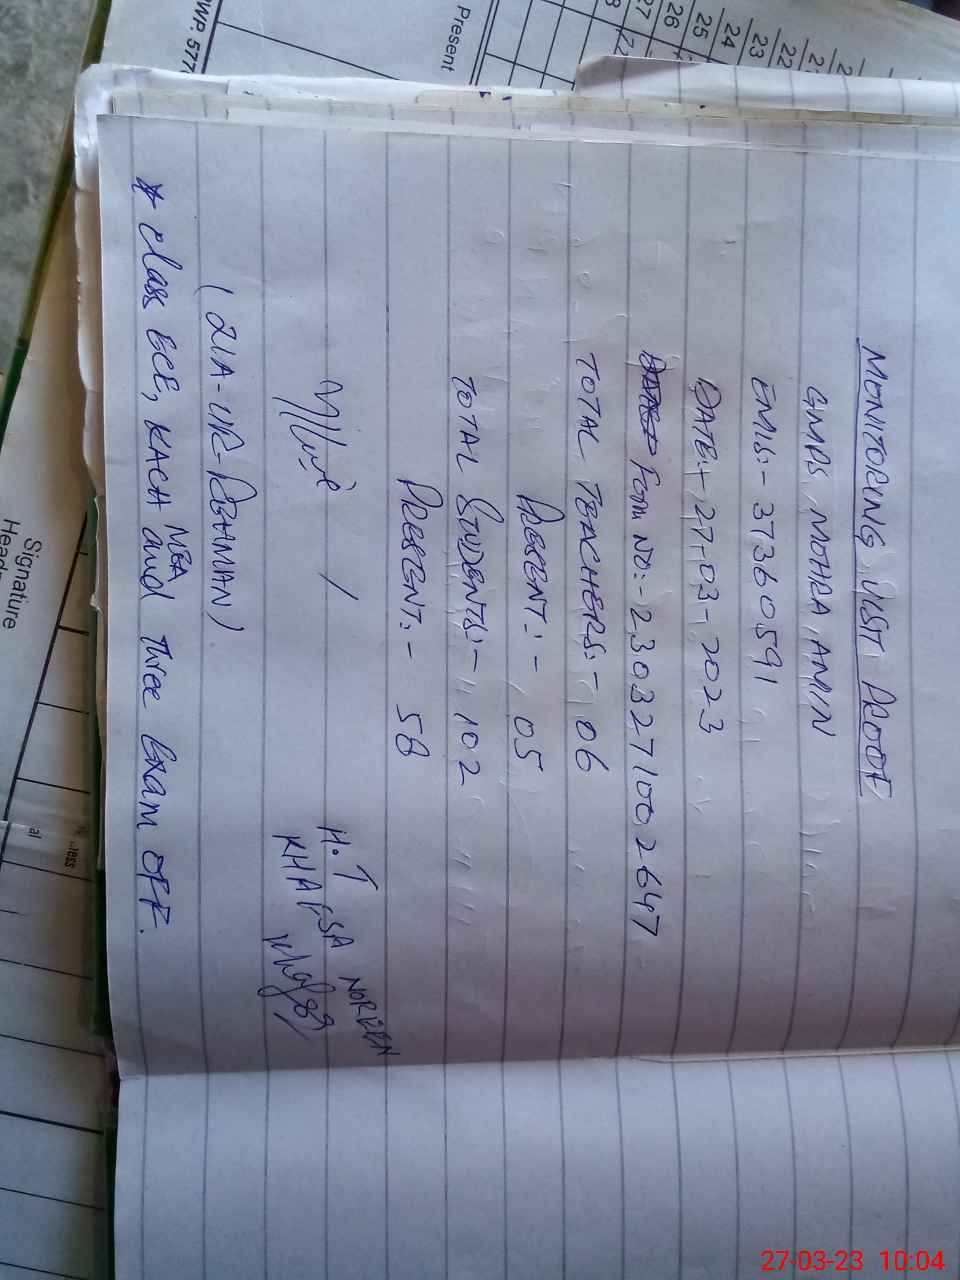 MONITORING VISIT PROOF
GMPS MOHRA AMIN
EMIS:- 37360591
DATE:- 27-03-2023
Form No:- 230327100,2647
TOTAL TEACHERS:- 06
PRESENT:- 05
TOTAL STUDENTS:- 102
PRESENT:- 58
H.T
KHAFSA NOREEN
MEA
(ZIA-UR-REHMAN).
* Class ECE, KACHI and three Exam OFF.
WP. 577
Present
26
25
24
23
22
Signature
Head
27-03-23 10:04